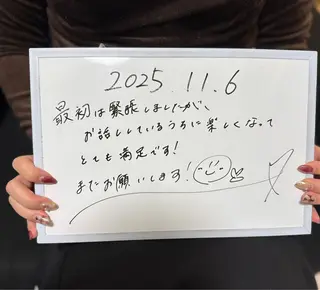 2025.11.6
最初は緊張しましたが、
お話ししているうちに楽しくなって
とても満足です!
またお願いします!